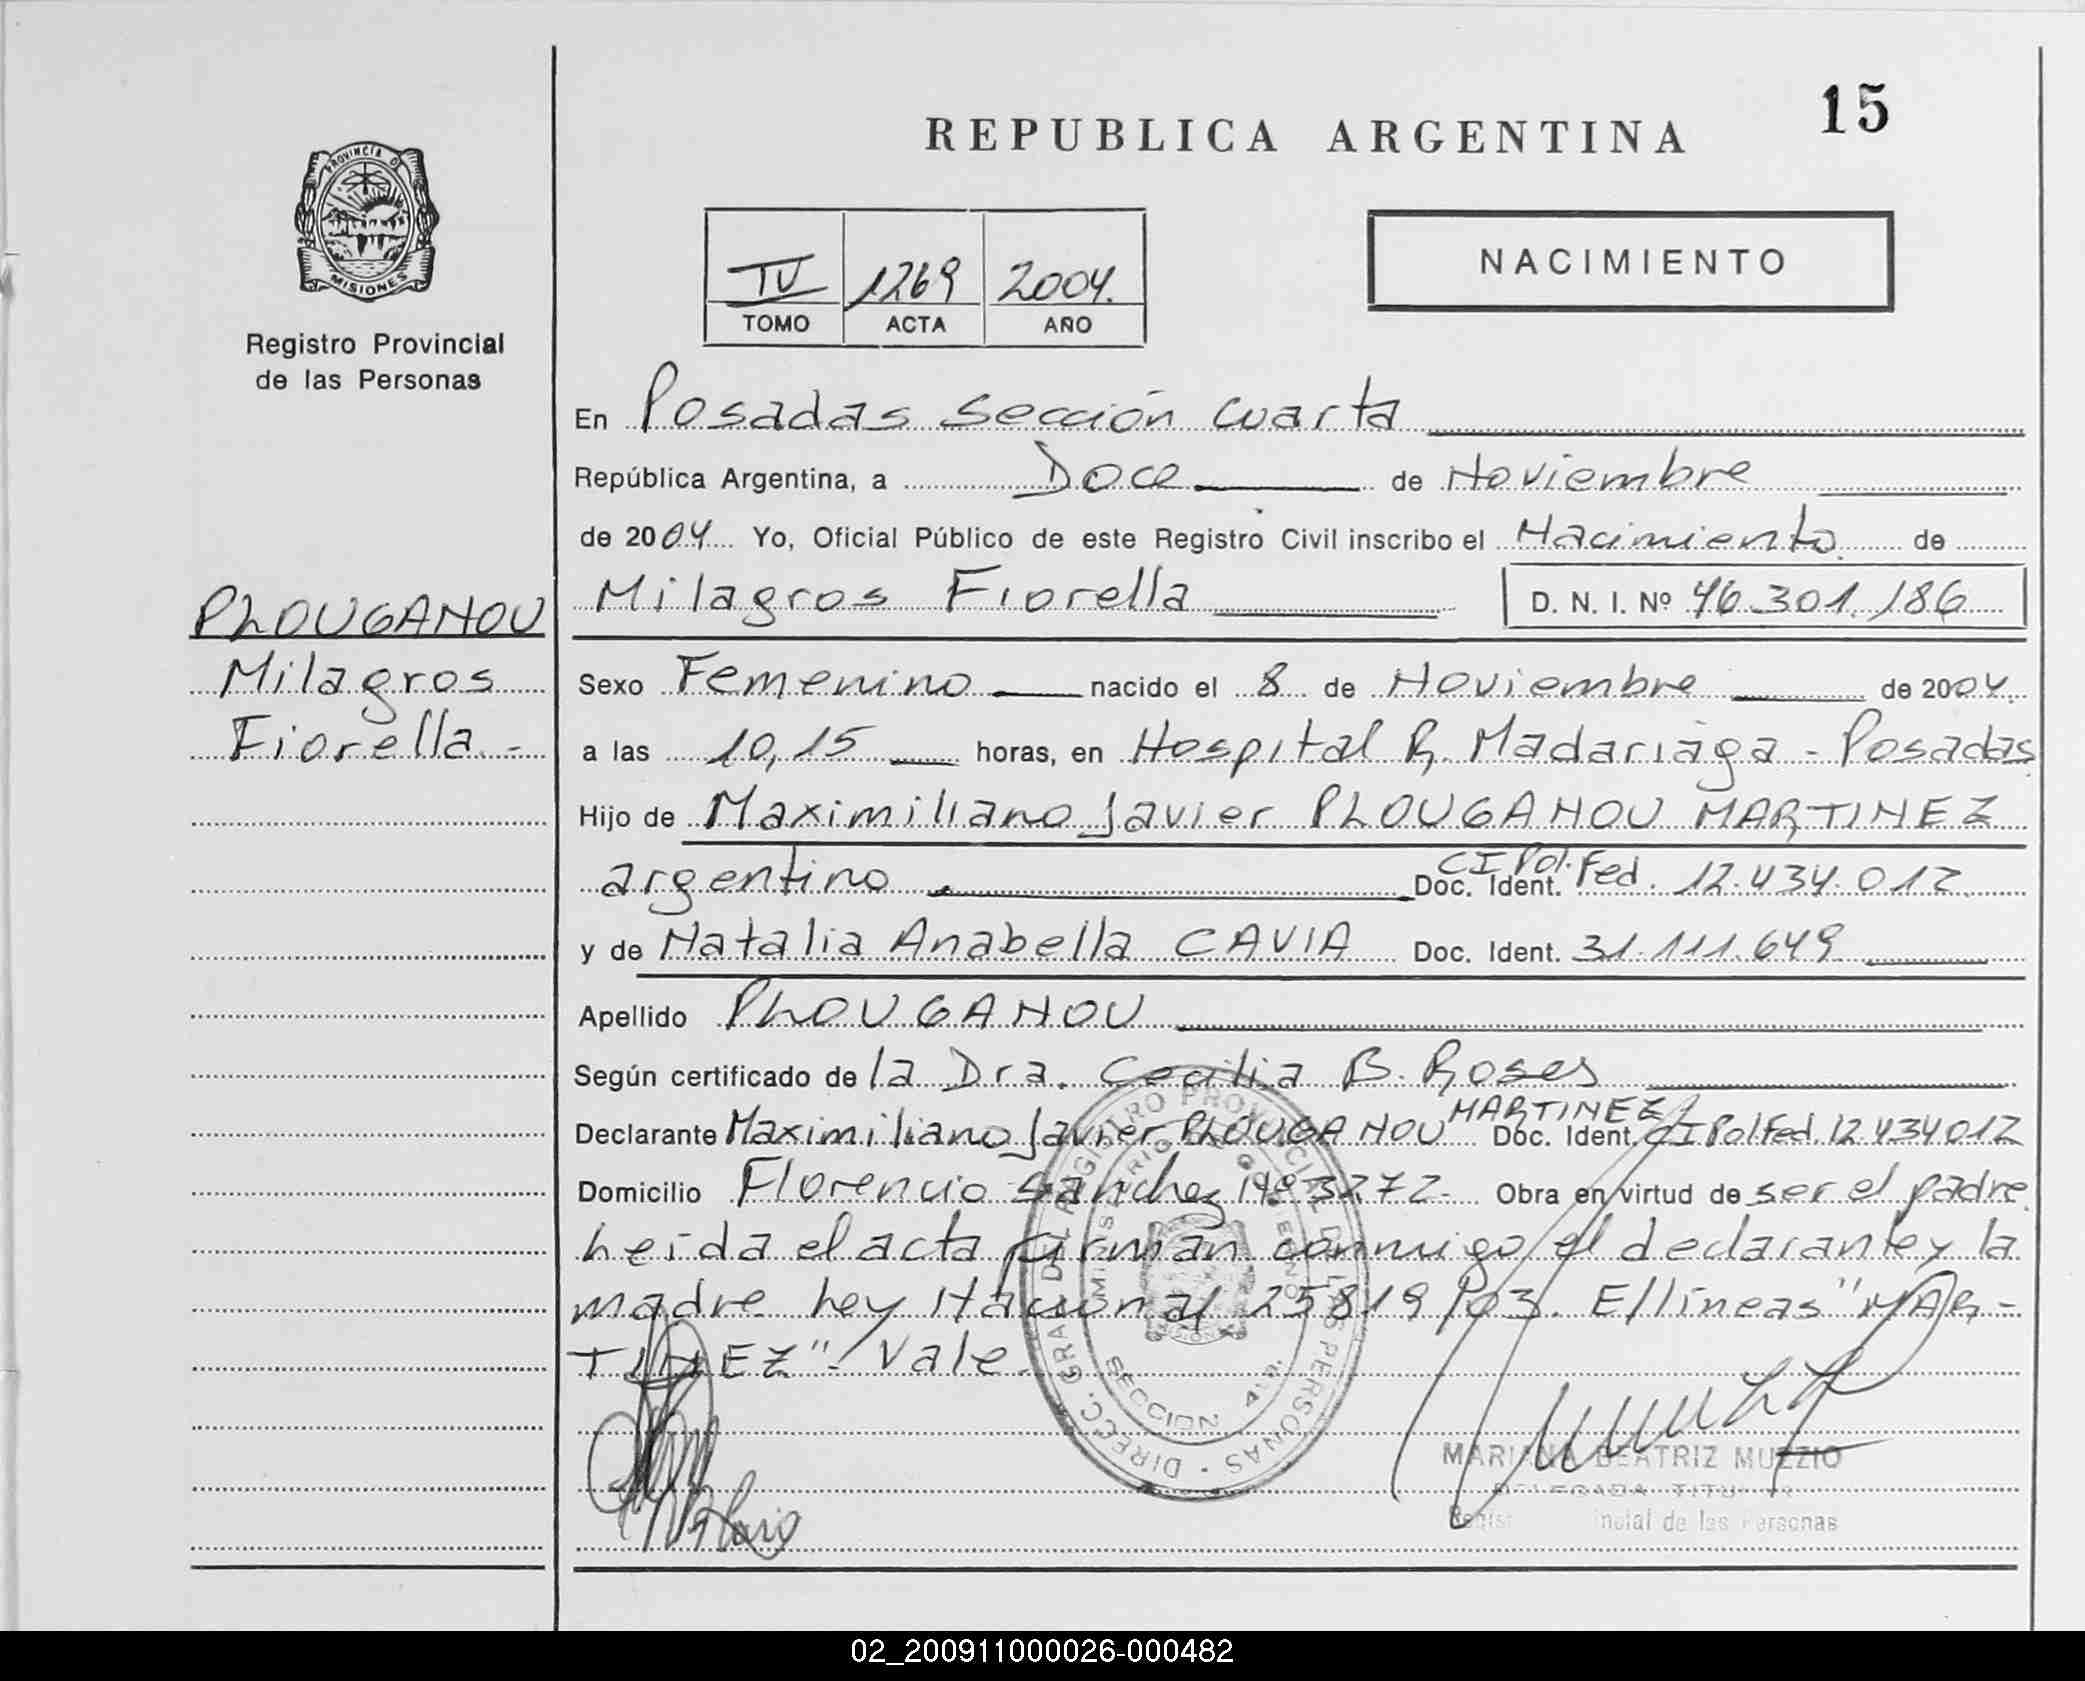 REPUBLICA ARGENTINA
15
PROVINCIA DE
MISIONES
Registro Provincial
de las Personas
IV 1269 2004.
TOMO ACTA AÑO
NACIMIENTO
En Posadas Sección Cuarta
República Argentina, a Doce de Noviembre
de 2004 Yo, Oficial Público de este Registro Civil inscribo el Nacimiento de
Milagros Fiorella
D. N. I. Nº 46.301.186
PLOUGANOU
Milagros
Fiorella.-
Sexo Femenino nacido el 8 de Noviembre de 2004.
a las 10,15 horas, en Hospital R. Madariaga - Posadas
Hijo de Maximiliano Javier PLOUGANOU MARTINEZ
argentino Doc. Ident. CI Pol. Fed. 12.434.012
y de Natalia Anabella CAVIA Doc. Ident. 31.111.649
Apellido PLOUGANOU
Según certificado de la Dra. Cecilia B. Roses
Declarante Maximiliano Javier PLOUGANOU MARTINEZ Doc. Ident. CI Pol Fed. 12 434 012
Domicilio Florencio Sánchez Nº 3272- Obra en virtud de ser el padre
Leída el acta firman conmigo el declarante y la
madre Ley Nacional 25819/03. E/líneas "MAR-
TINEZ" Vale.
DIRECC. GRAL. DEL REGISTRO PROVINCIAL DE LAS PERSONAS
MINISTERIO DE GOBIERNO
SECCION 4ta.
MARIANA BEATRIZ MUZZIO
DELEGADA TITULAR
de las Personas
02_200911000026-000482